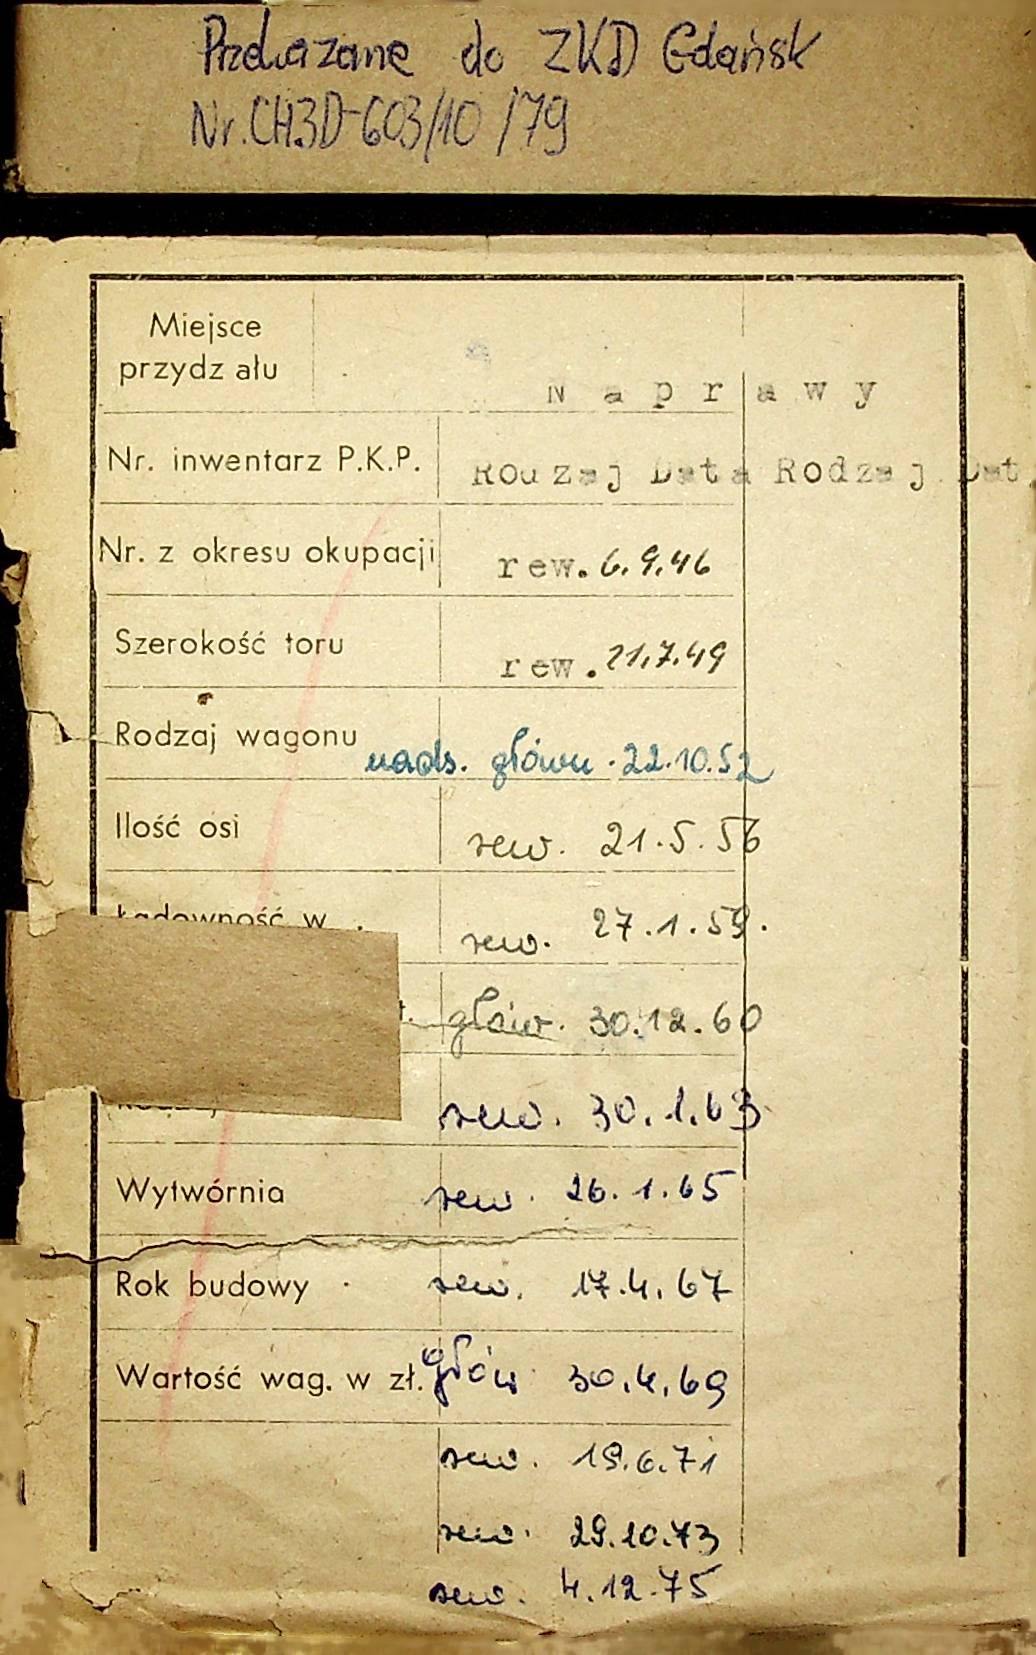 Przekazane do ZKD Gdańsk
Nr. CH3D-603/10/79
Miejsce
przydz ału
N a p r a w y
Nr. inwentarz P.K.P.
Rodzaj Data Rodzaj Dat
Nr. z okresu okupacji
rew. 6.9.46
Szerokość toru
rew. 21.7.49
Rodzaj wagonu
nads. główn. 22.10.52
Ilość osi
rew. 21.5.56
Ładowność w
rew. 27.1.59.
t.
głów. 30.12.60
rew. 30.1.63
Wytwórnia
rew. 26.1.65
Rok budowy
rew. 17.4.67
Wartość wag. w zł.
głów 30.4.69
rew. 19.6.71
rew. 29.10.73
rew. 4.12.75